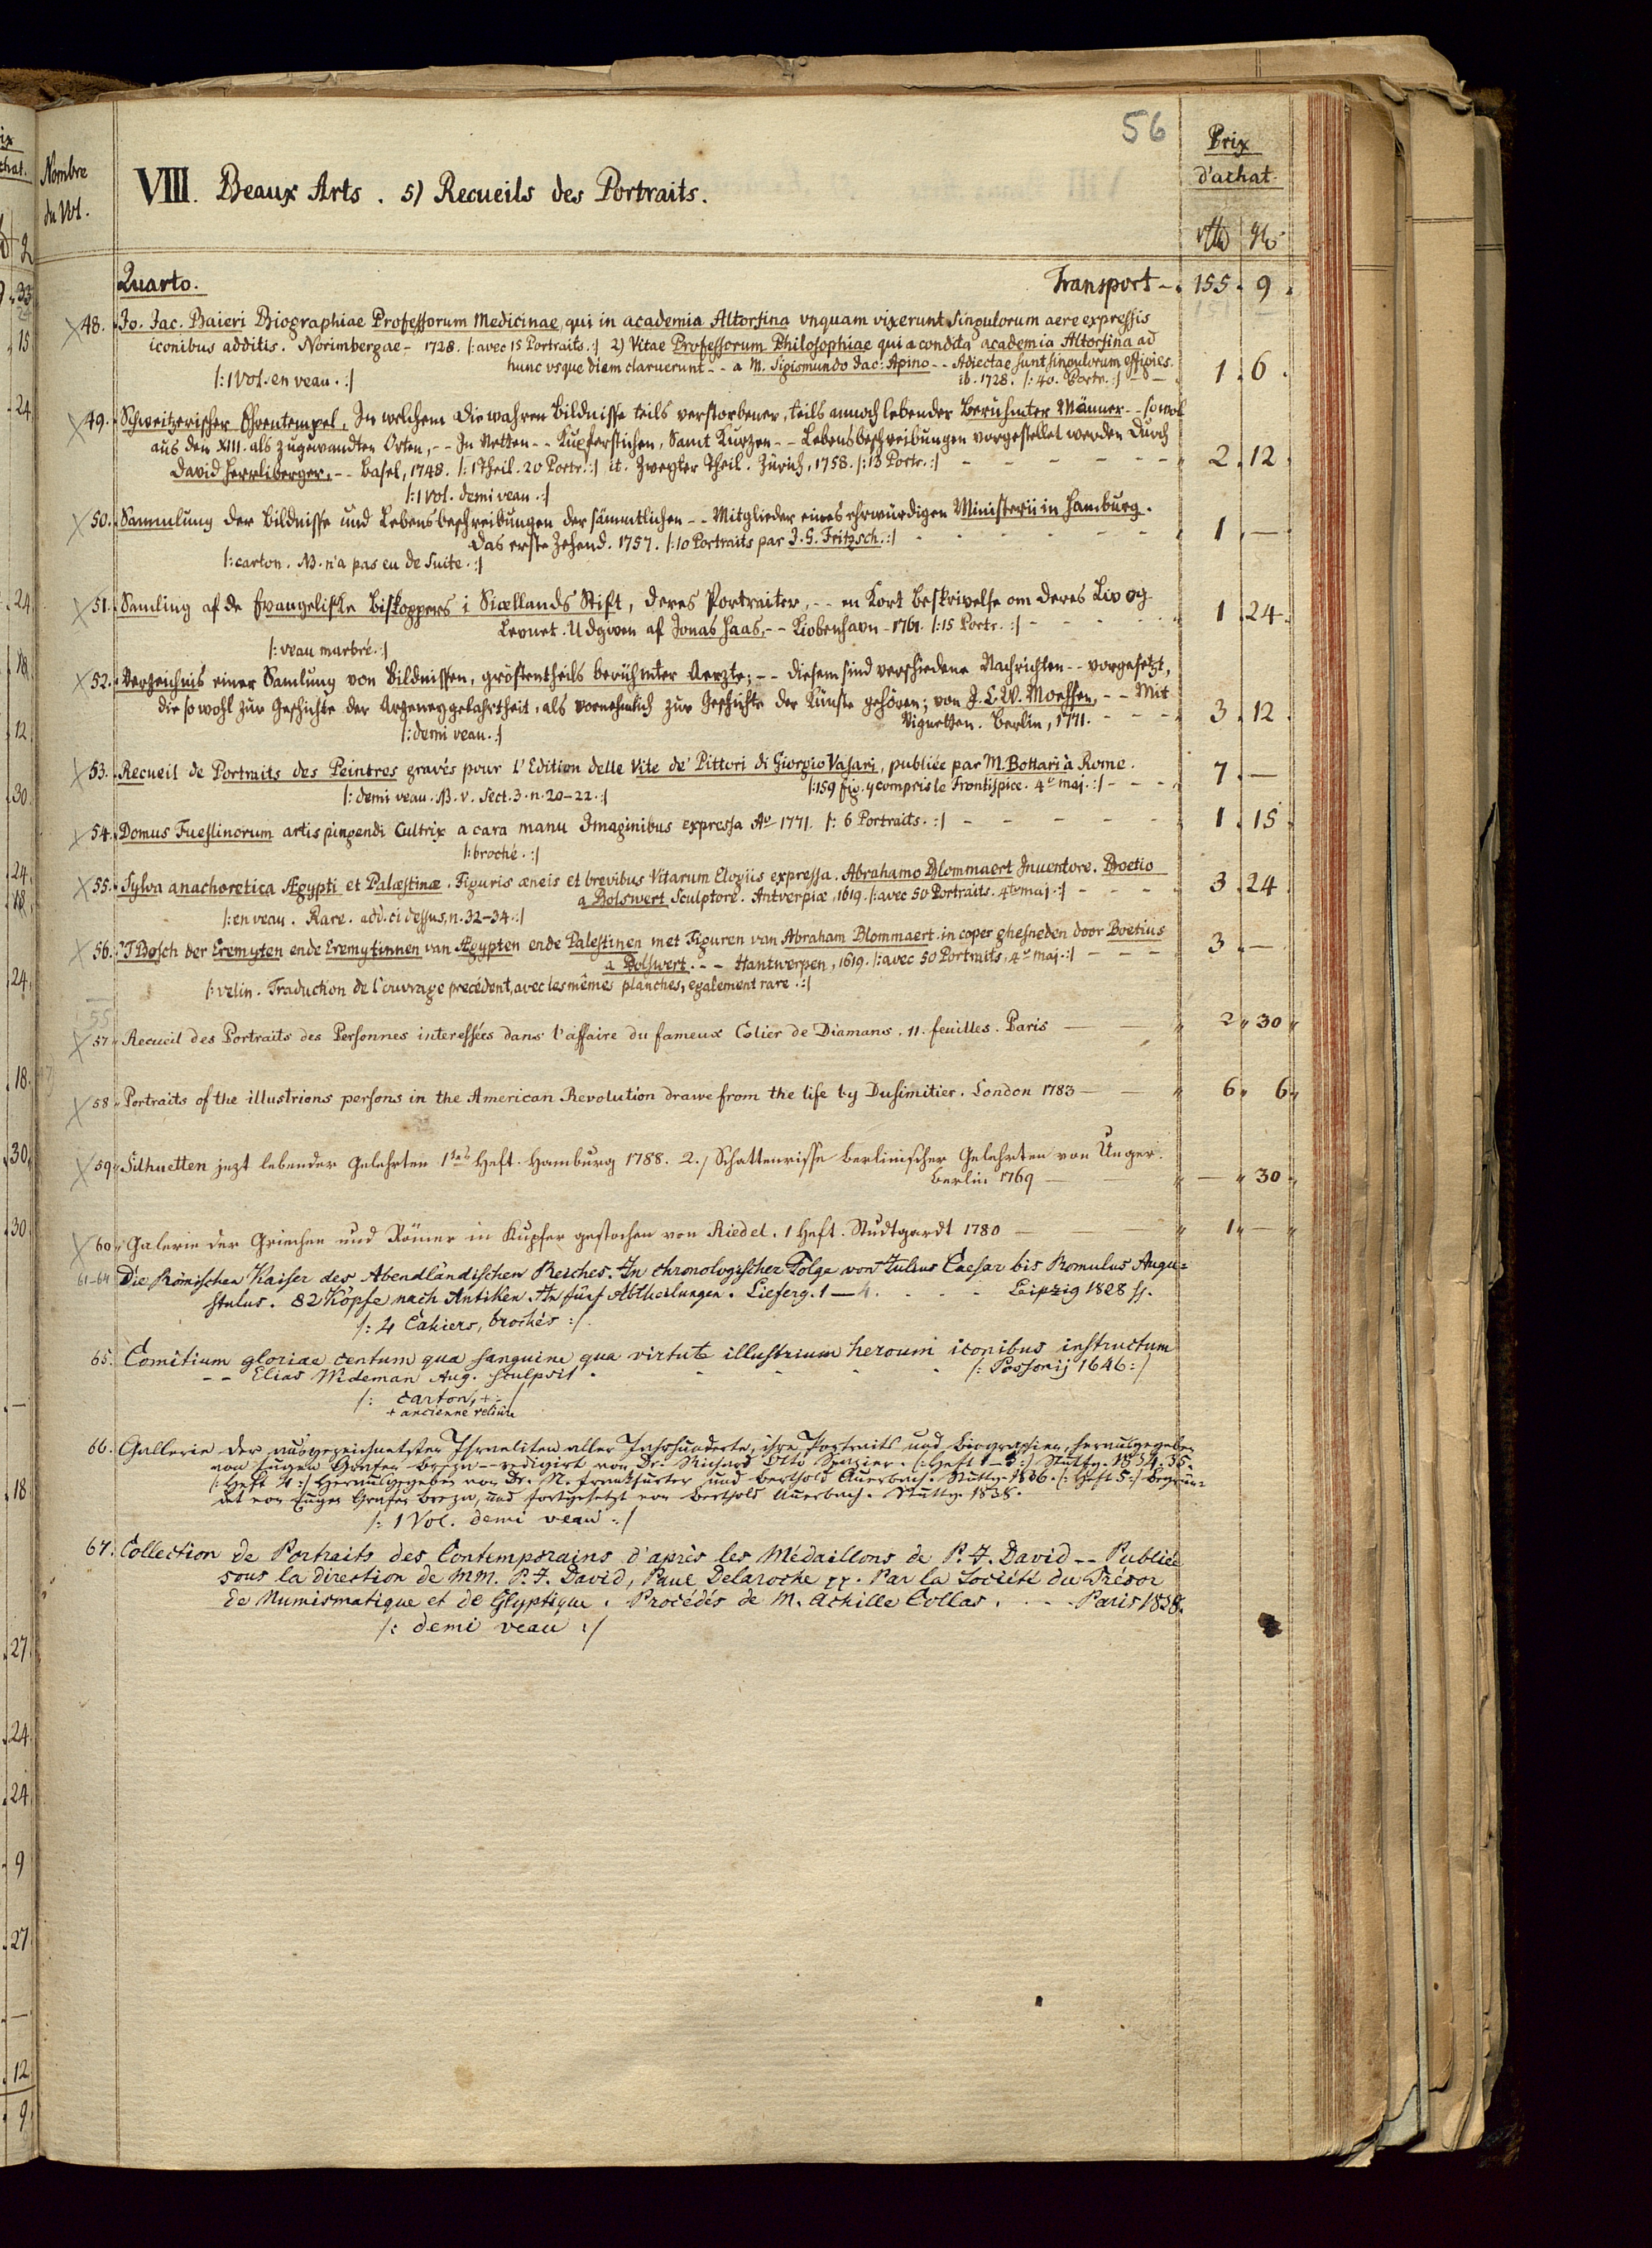 56
Nombre
du Vol.
VIII. Beaux Arts. 5) Recueils des Portraits.
Prix
d'achat.
Quarto. Transport - 155. 9.
48. Jo. Jac. Baieri Biographiae Professorum Medicinae, qui in academia Altorfina vnquam vixerunt singulorum aere expressis
iconibus additis. Norimbergae - 1728. /: avec 15 Portraits. :/ 2) Vitae Professorum Philosophiae qui a condita academia Altorfina ad
hunc vsque diem claruerunt - - a M. Sigismundo Jac: Apino - - Adiectae sunt singulorum effigies.
/: 1 Vol. en veau. :/ ib. 1728. /: 40. Portr. :/ - - 1. 6.
49. Schweitzerischer Ehrentempel, In welchem die wahren Bildnisse teils verstorbener, teils annoch lebender Berühmter Männer - - sowol
aus den XIII. als zugewandten Orten, - - In Netten - - Kupferstichen, Samt Kurzen - - Lebensbeschreibungen vorgestellet werden durch
David Herrliberger. - - Basel, 1748. /: 1 Theil. 20 Portr. :/ it. Zweyter Theil. Zürich, 1758. /: 13 Portr. :/ - - - 2. 12.
/: 1 Vol. demi veau. :/
50. Sammlung der Bildnisse und Lebensbeschreibungen der sämmtlichen - - Mitglieder eines ehrwürdigen Ministerii in Hamburg.
das erste Zehend. 1757. /: 10 Portraits par J. G. Fritzsch. :/ - - - 1. —
/: carton. NB. n'a pas eu de suite. :/
51. Samling af de Evangeliske Biskoppers i Siællands Stift, deres Portraiter, - - en Kort Beskrivelse om deres Liv og
Levnet. Udgiven af Jonas Haas, - - Kiobenhavn - 1761. /: 15 Portr. :/ - - - 1. 24.
/: veau marbré. :/
52. Verzeichnis einer Samlung von Bildnissen, gröstentheils berühmter Aerzte; - - diesem sind verschiedene Nachrichten - - vorgesetzt,
die sowohl zur Geschichte der Arzeneygelahrtheit, als vornehmlich zur Geschichte der Künste gehören; von J. C. W. Moehsen, - - Mit
Vignetten. Berlin, 1771. - - - 3. 12.
/: demi veau. :/
53. Recueil de Portraits des Peintres gravés pour l'Edition delle Vite de' Pittori di Giorgio Vasari, publiée par M. Bottari à Rome.
/: demi veau. NB. v. Sect. 3. n. 20–22. :/ /: 159 fig. y compris le Frontispice. 4º maj. :/ - - - 7. —
54. Domus Fueslinorum artis pingendi Cultrix a cara manu Imaginibus expressa Aº 1771. /: 6 Portraits. :/ - - - 1. 15.
/: broché. :/
55. Sylva anachoretica Ægypti et Palæstinæ. Figuris æneis et brevibus Vitarum Elogiis expressa. Abrahamo Blommaert Inuentore. Boetio
a Bolswert Sculptore. Antverpiæ, 1619. /: avec 50 Portraits. 4to maj. :/ - - - 3. 24.
/: en veau. Rare. add. ci dessus, n. 32–34. :/
56. 'T Bosch der Eremyten ende Eremytinnen van Ægypten ende Palestinen met Figuren van Abraham Blommaert. in coper ghesneden door Boetius
a Bolswert. - - Hantwerpen, 1619. /: avec 50 Portraits, 4º maj. :/ - - - 3. —
/: velin. Traduction de l'ouvrage precédent, avec les mêmes planches, egalement rare. :/
55
57. Recueil des Portraits des Personnes interessées dans l'affaire du fameux Colier de Diamans. 11. feuilles. Paris — — 2 " 30 "
58. Portraits of the illustrions persons in the American Revolution drawe from the life by Dusimitier. London 1783 — — 6 " 6 "
59. Silhuetten jezt lebender Gelehrten 1stes Heft. Hamburg 1788. 2./ Schattenrisse berlinischer Gelehrten von Unger.
Berlin 1769 — — " 30 "
60. Galerie der Griechen und Römer in Kupfer gestochen von Riedel. 1 Heft. Studtgardt 1780 — — 1 " — "
61–64 Die Römischen Kaiser des Abendländischen Reiches. In chronologischer Folge von Julius Caesar bis Romulus Augu=
stulus. 82 Köpfe nach Antiken. In fünf Abtheilungen. Lieferg. 1—4. . . . Leipzig 1828 ff.
/: 4 Cahiers, brochés :/
65. Comitium gloriae centum qua sanguine qua virtute illustrium heroum iconibus instructum
- - Elias Wideman Aug. sculpsit . . . . /: Possonij 1646 :/
/: carton, + :/
+ ancienne reliure
66. Gallerie der ausgezeichnetsten Israeliten aller Jahrhunderte, ihre Portraits und Biographien, herausgegeben
von Eugen Grafen Breza - - redigirt von Dr. Richard Otto Spazier. /: Heft 1–3 :/ Stuttg. 1834. 35.
/: Heft 4 :/ Herausgegeben von Dr. N. Frankfurter und Berthold Auerbach. Stuttg. 1836. /: Heft 5 :/ Begrün=
det von Eugen Grafen Breza, und fortgesetzt von Berthold Auerbach. Stuttg. 1838.
/: 1 Vol. demi veau :/
67. Collection de Portraits des Contemporains d'après les Médaillons de P. J. David - - Publiée
sous la direction de MM. P. J. David, Paul Delaroche pp. Par la Société du Trésor
de Numismatique et de Glyptique. Procédés de M. Achille Collas. . . . Paris 1838.
/: demi veau :/